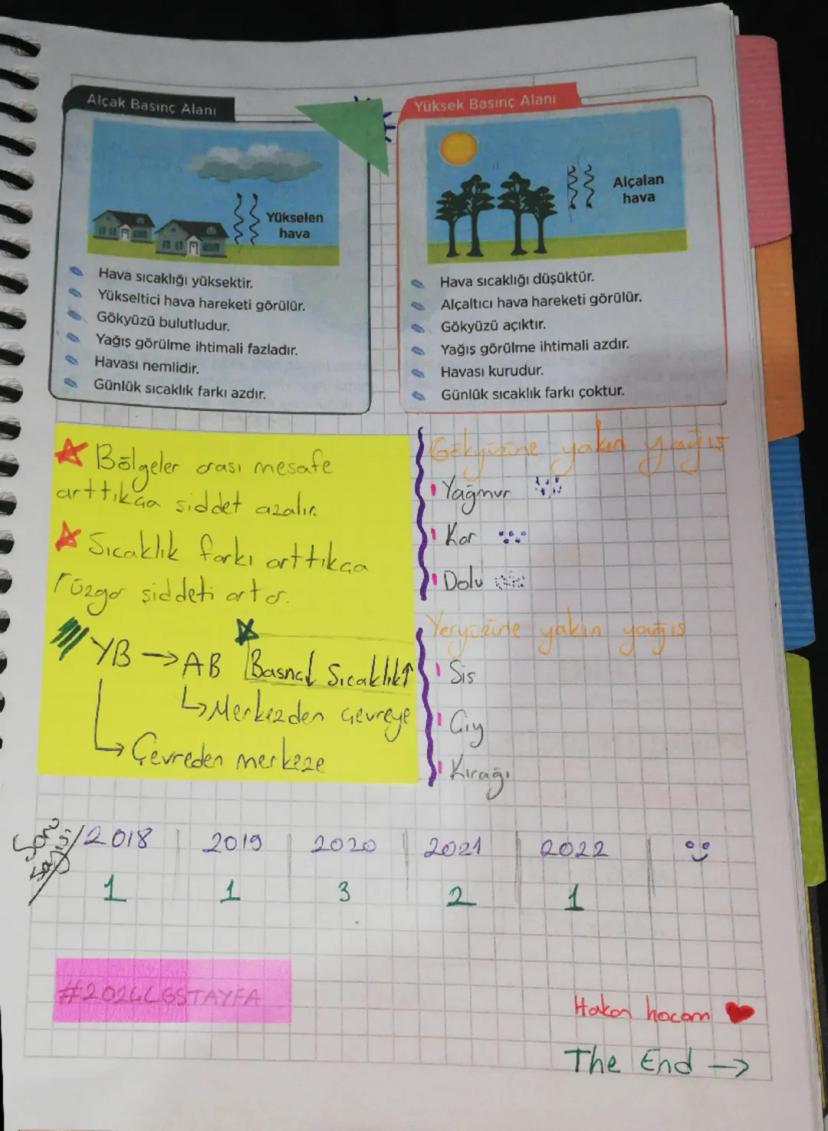 Alçak Basınç Alanı
Yükselen
hava
Hava sıcaklığı yüksektir.
Yükseltici hava hareketi görülür.
Gökyüzü bulutludur.
Yağış görülme ihtimali fazladır.
Havası nemlidir.
Günlük sıcaklık farkı azdır.
Yüksek Basınç Alanı
Alçalan
hava
Hava sıcaklığı düşüktür.
Alçaltıcı hava hareketi görülür.
Gökyüzü açıktır.
Yağış görülme ihtimali azdır.
Havası kurudur.
Günlük sıcaklık farkı çoktur.
Bölgeler arası mesafe
arttıkça şiddet azalır.
Sıcaklık farkı arttıkça
rüzgar şiddeti artar.
YB → AB Basınç↓ Sıcaklık↑
↳ Merkezden çevreye
↳ Çevreden merkeze
Gökyüzüne yakın yağış
Yağmur
Kar
Dolu
Yeryüzüne yakın yağış
Sis
Çiy
Kırağı
Soru
Sayısı
2018 2019 2020 2021 2022
1 1 3 2 1
#2024LGSTAYFA
Hakan hocam
The End →